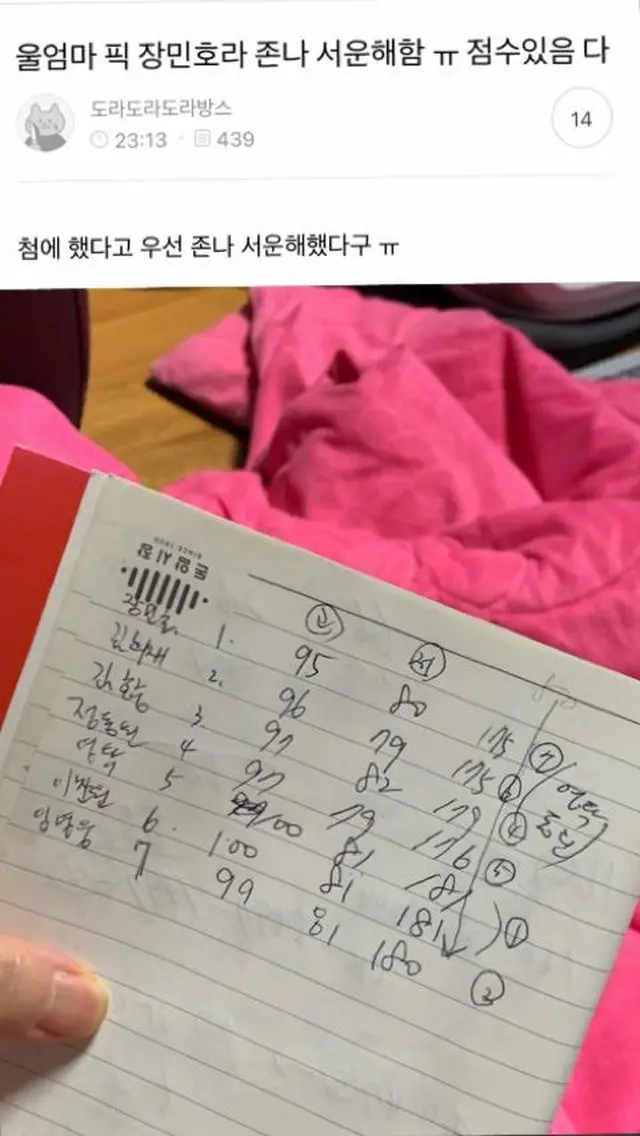 울엄마 픽 장민호라 존나 서운해함 ㅠ 점수있음 다
도라도라도라방스
23:13 · 439
14
첨에 했다고 우선 존나 서운해했다구 ㅠ
돈암시장
SINCE 1909
장민호 1. 95 80 175 ⑦
김희재 2. 96 79 175 ⑥
김호중 3 97 82 179 ④
정동원 4 97 79 176 ⑤
영탁 5 100 81 181
이찬원 6. 100 81 181 ①
임영웅 7 99 81 180 ③
영탁
동원